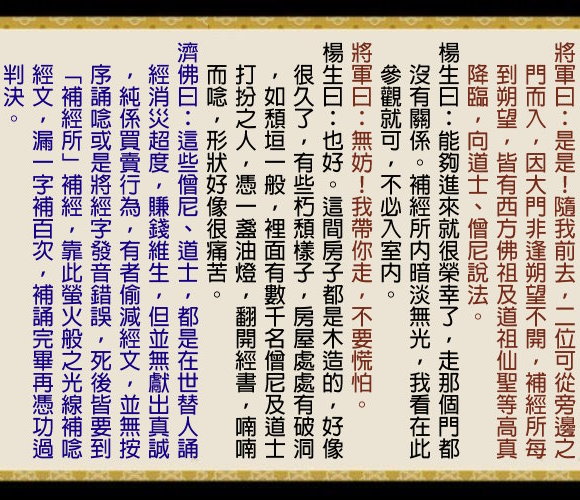 將軍曰：是是！隨我前去，二位可從旁邊之
門而入，因大門非逢朔望不開，補經所每
到朔望，皆有西方佛祖及道祖仙聖等高真
降臨，向道士、僧尼說法。
楊生曰：能夠進來就很榮幸了，走那個門都
沒有關係。補經所內暗淡無光，我看在此
參觀就可，不必入室內。
將軍曰：無妨！我帶你走，不要慌怕。
楊生曰：也好。這間房子都是木造的，好像
很久了，有些朽頹樣子，房屋處處有破洞
，如頹垣一般，裡面有數千名僧尼及道士
打扮之人，憑一盞油燈，翻開經書，喃喃
而唸，形狀好像很痛苦。
濟佛曰：這些僧尼、道士，都是在世替人誦
經消災超度，賺錢維生，但並無獻出真誠
，純係買賣行為，有者偷減經文，並無按
序誦唸或是將經字發音錯誤，死後皆要到
「補經所」補經，靠此螢火般之光線補唸
經文，漏一字補百次，補誦完畢再憑功過
判決。